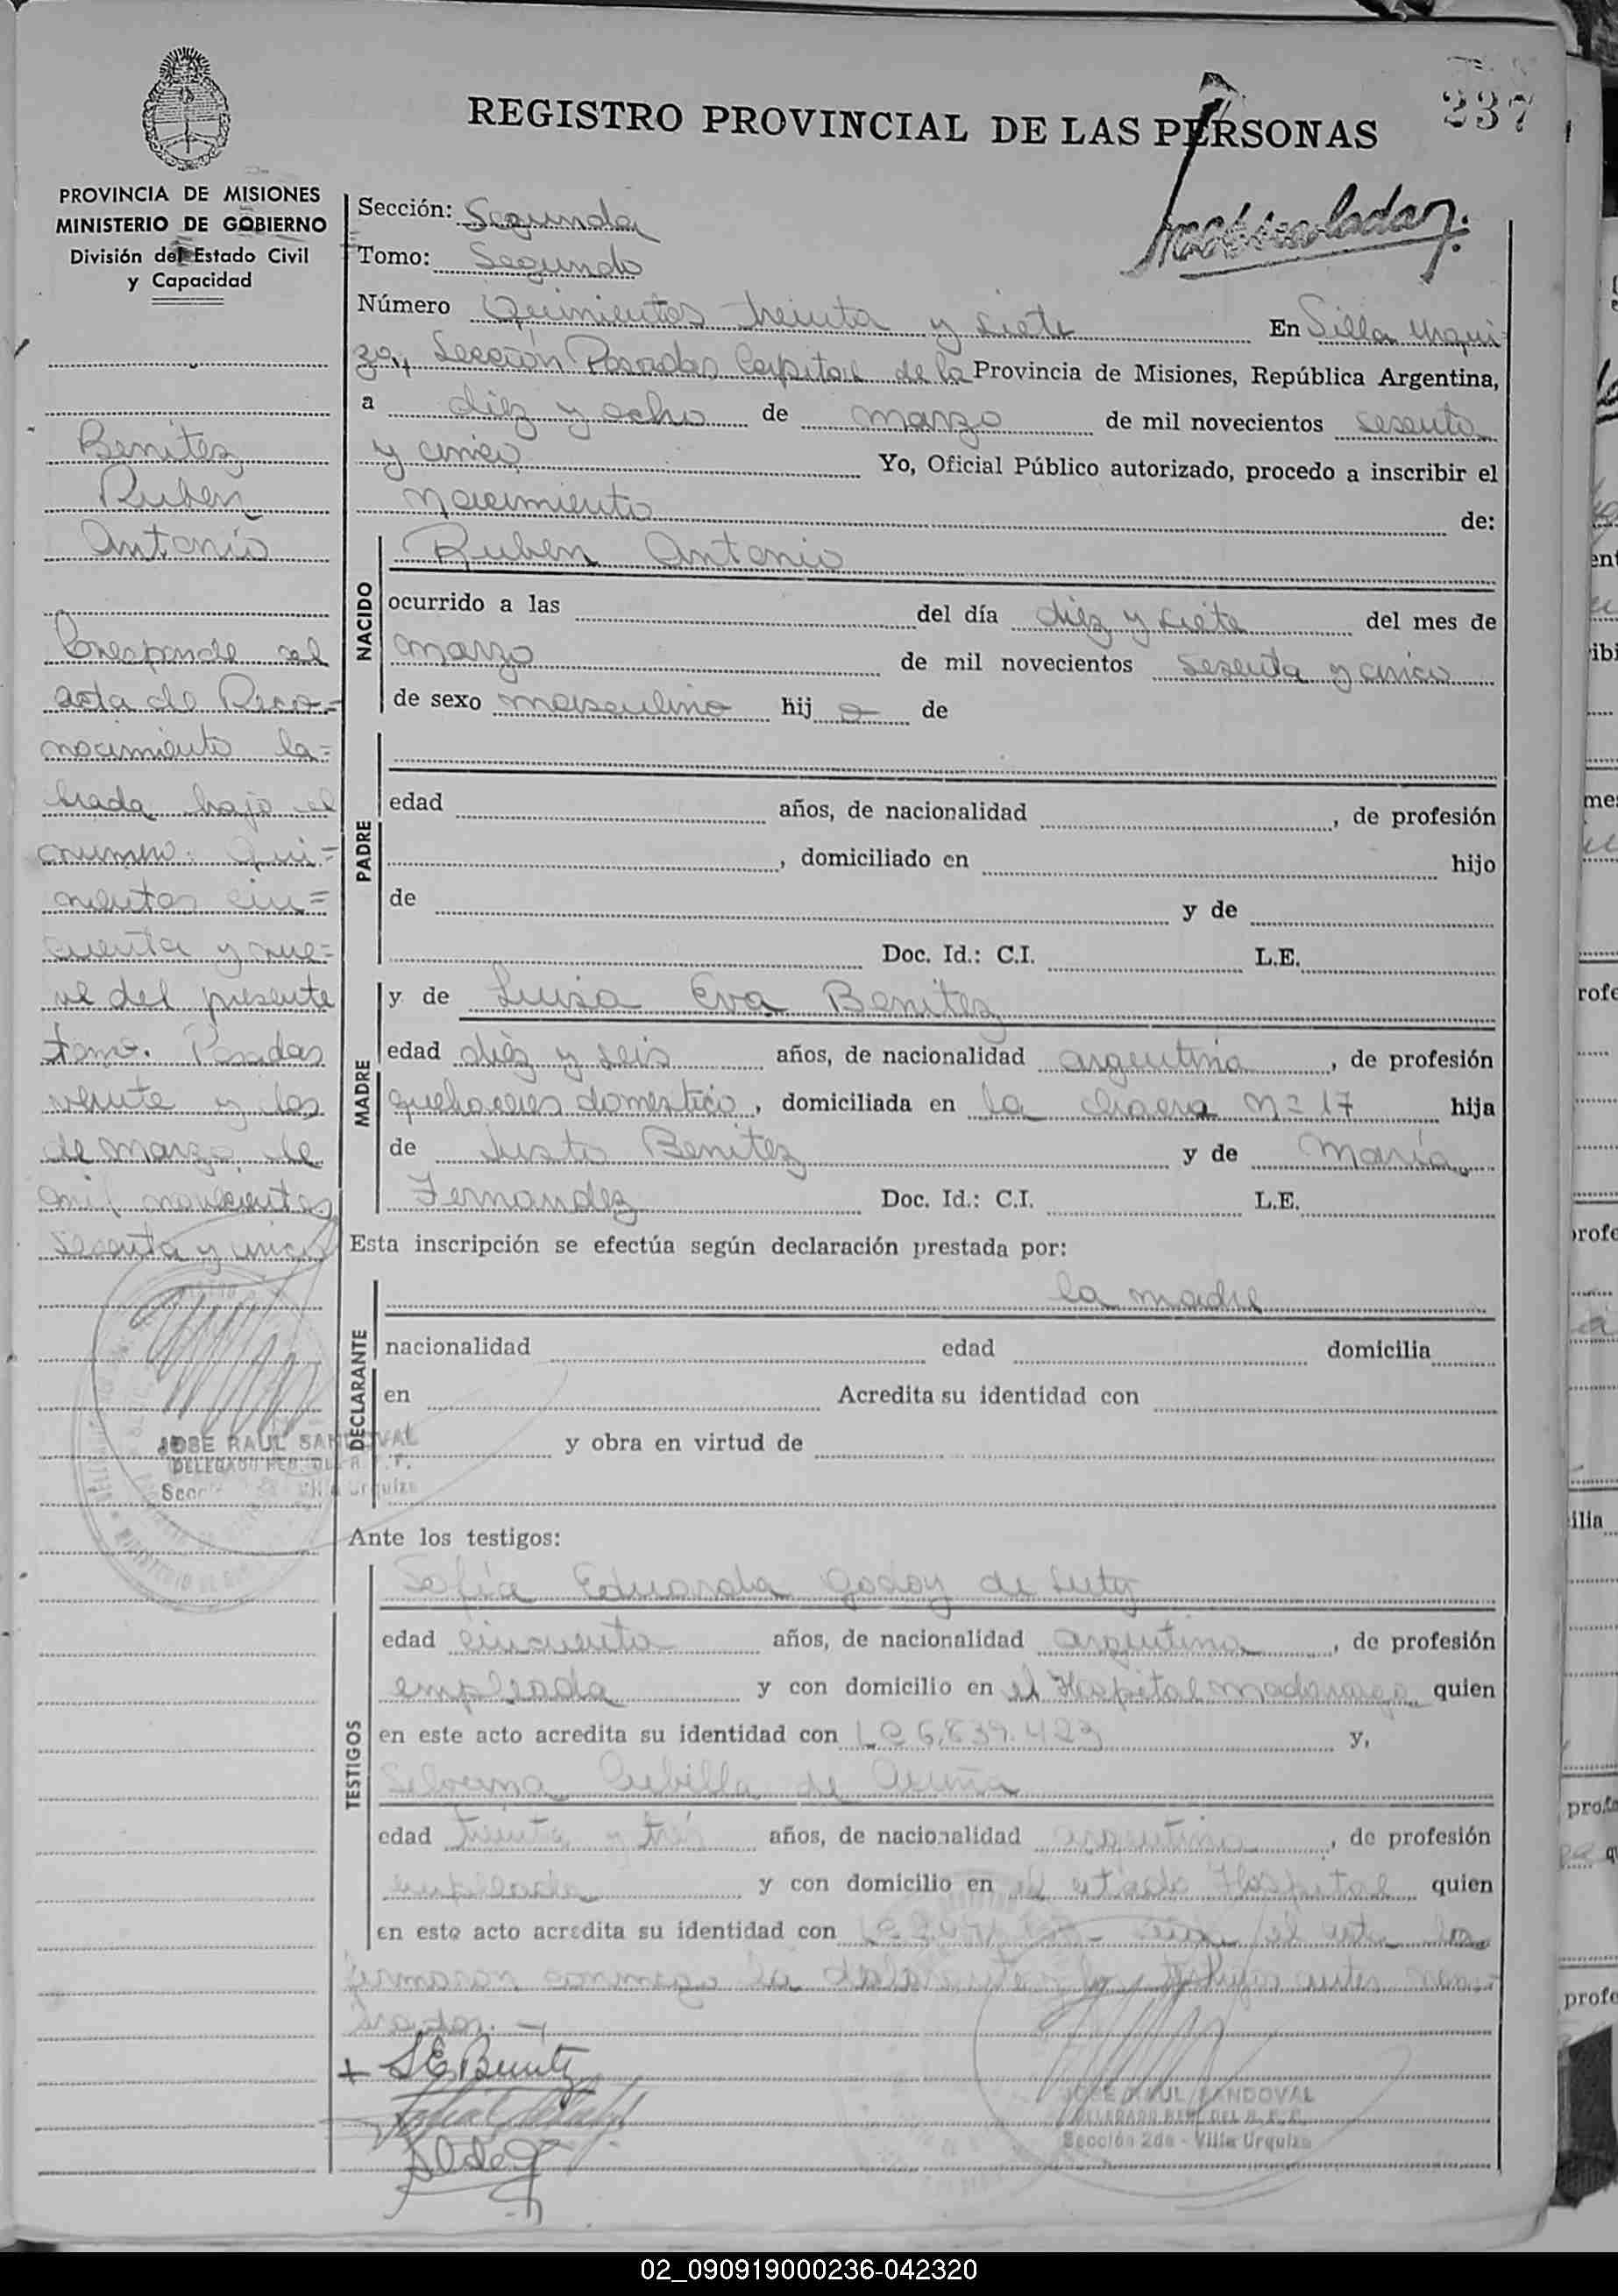 237
REGISTRO PROVINCIAL DE LAS PERSONAS
PROVINCIA DE MISIONES
MINISTERIO DE GOBIERNO
División del Estado Civil
y Capacidad
Benitez
Ruben
Antonio
Corresponde al
acta de Reco=
nocimiento la=
brada bajo el
numero: Qui=
nientos cin=
cuenta y nue=
ve del presente
tomo. Posadas
veinte y dos
de marzo de
mil novecientos
sesenta y cinco
JOSE RAUL SANDOVAL
DELEGADO REG. DEL R. P. P.
Villa Urquiza
Sección: Segunda
Tomo: Segundo
Número Quinientos treinta y siete En Villa Urqui
za, Sección Posadas Capital de la Provincia de Misiones, República Argentina,
a diez y ocho de marzo de mil novecientos sesenta
y cinco Yo, Oficial Público autorizado, procedo a inscribir el
nacimiento de:
NACIDO
Ruben Antonio
ocurrido a las del día diez y siete del mes de
marzo de mil novecientos sesenta y cinco
de sexo masculino hij o de
PADRE
edad años, de nacionalidad , de profesión
, domiciliado en hijo
de y de
Doc. Id.: C.I. L.E.
MADRE
y de Luisa Eva Benitez
edad diez y seis años, de nacionalidad argentina, de profesión
quehaceres domestico, domiciliada en la chacra Nº 17 hija
de Justo Benitez y de María
Fernandez Doc. Id.: C.I. L.E.
Esta inscripción se efectúa según declaración prestada por:
DECLARANTE
la madre
nacionalidad edad domicilia
en Acredita su identidad con
y obra en virtud de
Ante los testigos:
TESTIGOS
Sofía Eduarda Godoy de
edad cincuenta años, de nacionalidad argentina, de profesión
empleada y con domicilio en el Hospital Madariaga quien
en este acto acredita su identidad con LC 6.839.423 y,
Cubilla de Acuña
edad treinta y tres años, de nacionalidad argentina, de profesión
empleada y con domicilio en el citado Hospital quien
en este acto acredita su identidad con el acta la
firmaron conmigo la declarante y testigos antes nom-
brados.
L E Benitez
JOSE RAUL SANDOVAL
DELEGADO REG. DEL R. P. P.
Sección 2da - Villa Urquiza
02_090919000236-042320